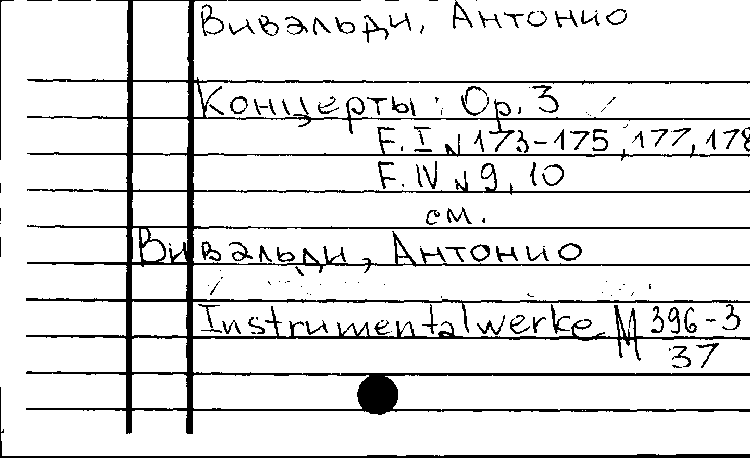 Вивальди, Антонио
Концерты: Op. 3
F. I N 173-175, 177, 178
F. IV N 9, 10
см.
Вивальди, Антонио
Instrumentalwerke M 396-3
37